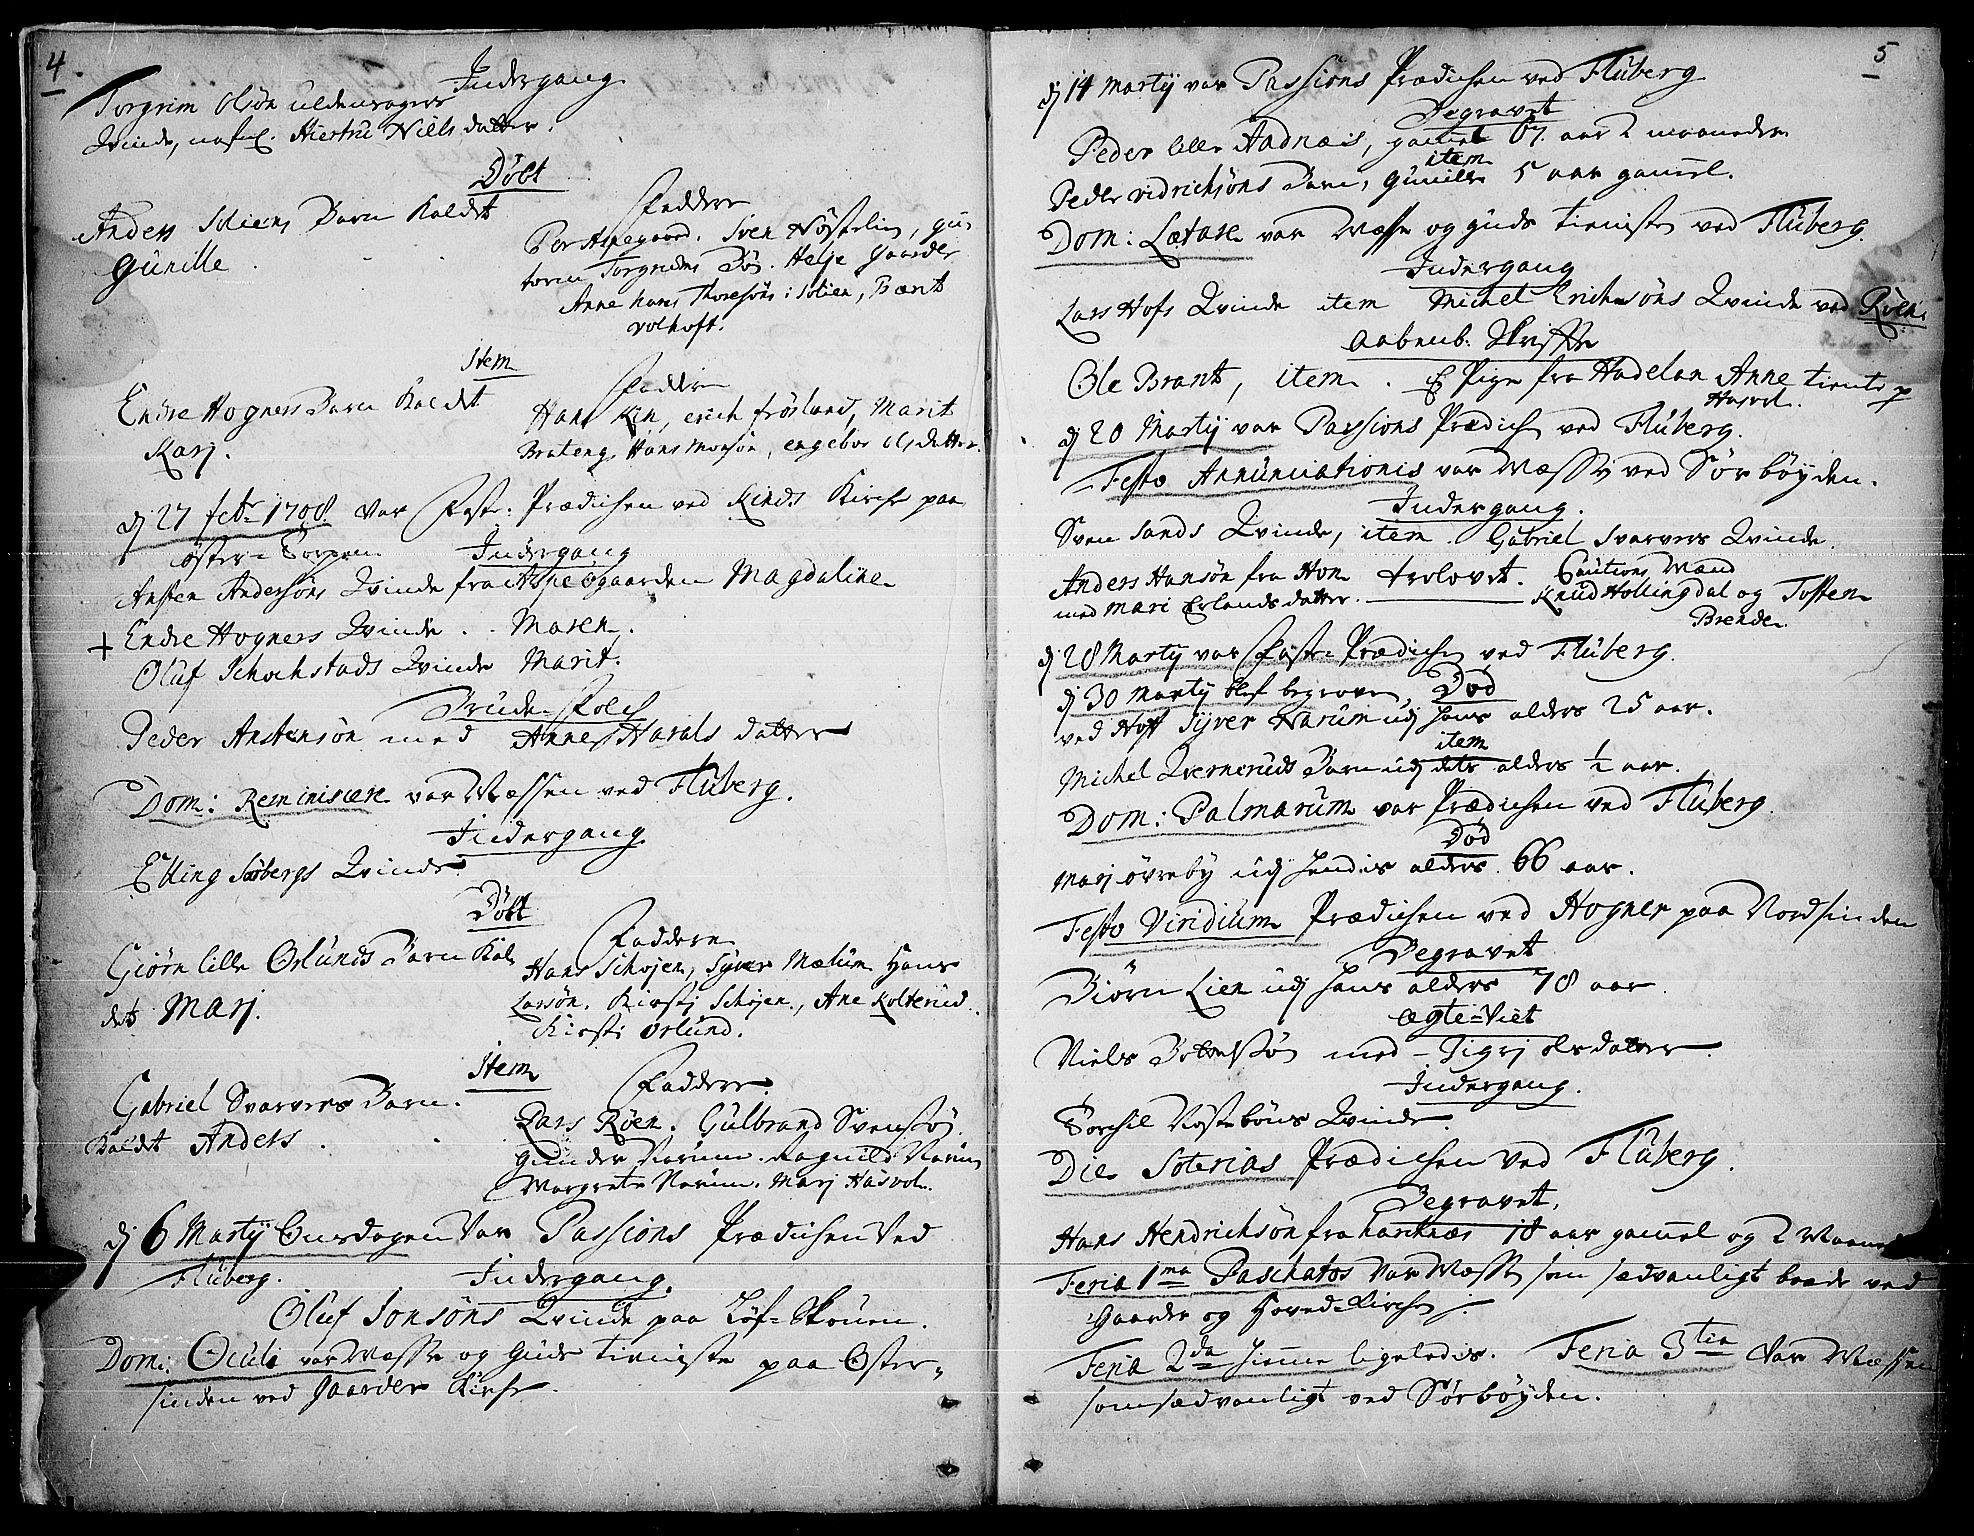 4.
Indergang
Torgrim Olsøn
Qvinde, nafnl. Niels datter.
Døbt
Anders Soliens Barn Kaldet
Gunille
Faddere
Per Alnegaard. Sven Nøsterlien, gu-
toren Torgrims Bøe. Helje Gaarder
Anne Hans Thoresøns i Solien, Bænt
volhoft.
Item
Endre Hogners Barn Kaldet
Karj.
Faddere
Hans Kin, erich frøslund, Marit
Brateng, Hans Monsøn, engebor olsdatter.
dj 27 febr 1708 var Faste-Prædichen ved Kinds Kirche paa
Øster-Torpen.
Indergang
Ansten Andersøns Qvinde fra Alnesgaarden Magdaline
+ Endre Hogners Qvinde . . Maren.
Oluf Schochstads Qvinde Marit.
Brude Folch
Peder Anstensøn med Anne Haralsdatter
Dom: Reminiscere var Messen ved Fluberg.
Indergang
Elling Søbergs Qvinde
Døbt
Giørn lille Orlunds Barn Kal-
det Marj.
Faddere
Hans Schøjen, Syver Mælum Hans
Larsøn. Kirstj Schøjen, Ane Kolterud.
Kirsti Orlund.
Item
Gabriel Svarvers Barn.
Kaldet Anders.
Faddere
Lars Røen. Gulbrand Svensøn.
Gunder Narum. Ragnild Narum
Margrete Narum. Marj Hasvol.
dj 6 Martij Onsdagen var Passions Prædichen ved
Fluberg.
Indergang.
Oluf Jonsøns Qvinde paa Løf-Skouen.
Dom: Oculi var Messe og Guds tieniste paa Øster-
sinden ved Gaarder Kirche.
5
dj 14 Martij var Passions Prædichen ved Fluberg
Begravet
Peder lille Aadnæs, gamel 67 aar 2 maaneder
item
Peder vidrichsøns Barn, Gunille 5 aar gamel.
Dom: Lætare var Messe og guds tieniste ved Fluberg.
Indergang
Lars Hofs Qvinde item Michel Erichsøns Qvinde ved Røen.
Aabenb. Skrifte
Ole Brant, item. E Pige fra Hadelan Anne tiente p
Hasvol.
dj 20 Martij var Passions Prædich ved Fluberg.
Festo Annunciationis var Messe ved Sørbøyden.
Indergang.
Sven Sands Qvinde, item. Gabriel Svarvers Qvinde.
Anders Hansøn fra Hon trolovet. Cautions Mænd
med Mari Erlandsdatter. Knud Hollingdal og Tosten
Brenden.
dj 28 Martij var Faste-Prædichen ved Fluberg.
dj 30 Martij blef begraven Død
ved Hoff Syver Narum udj hans alders 25 aar.
item
Michel Qverneruds Barn udj dets alders ½ aar.
Dom: Palmarum var Prædichen ved Fluberg.
Død
Marj øvreby udj hendis alders 66 aar.
Festo Viridium Prædichen ved Hogner paa Nordsinden
Begravet
Biørn Lien udj hans alders 78 aar.
Ægte-Viet
Niels med Sigrj olsdatter.
Indergang.
Torchil Qvinde.
Die Soterias Prædichen ved Fluberg.
Begravet.
Hans Hendrichsøn fra 18 aar gamel og 2 Maaneder
Feria 1ma Paschatos var Messe som sædvanligt baade ved
Gaarder og Hoved-Kirche.
Feria 2da hieme ligeledis. Feria 3tia var Messen
som sædvanligt ved Sørbøyden.